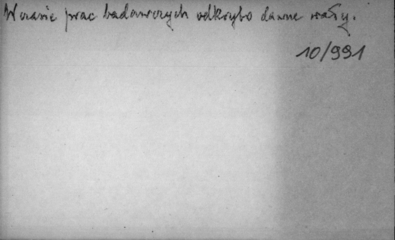 W czasie prac badawczych odkryto dawne wały.
10/991